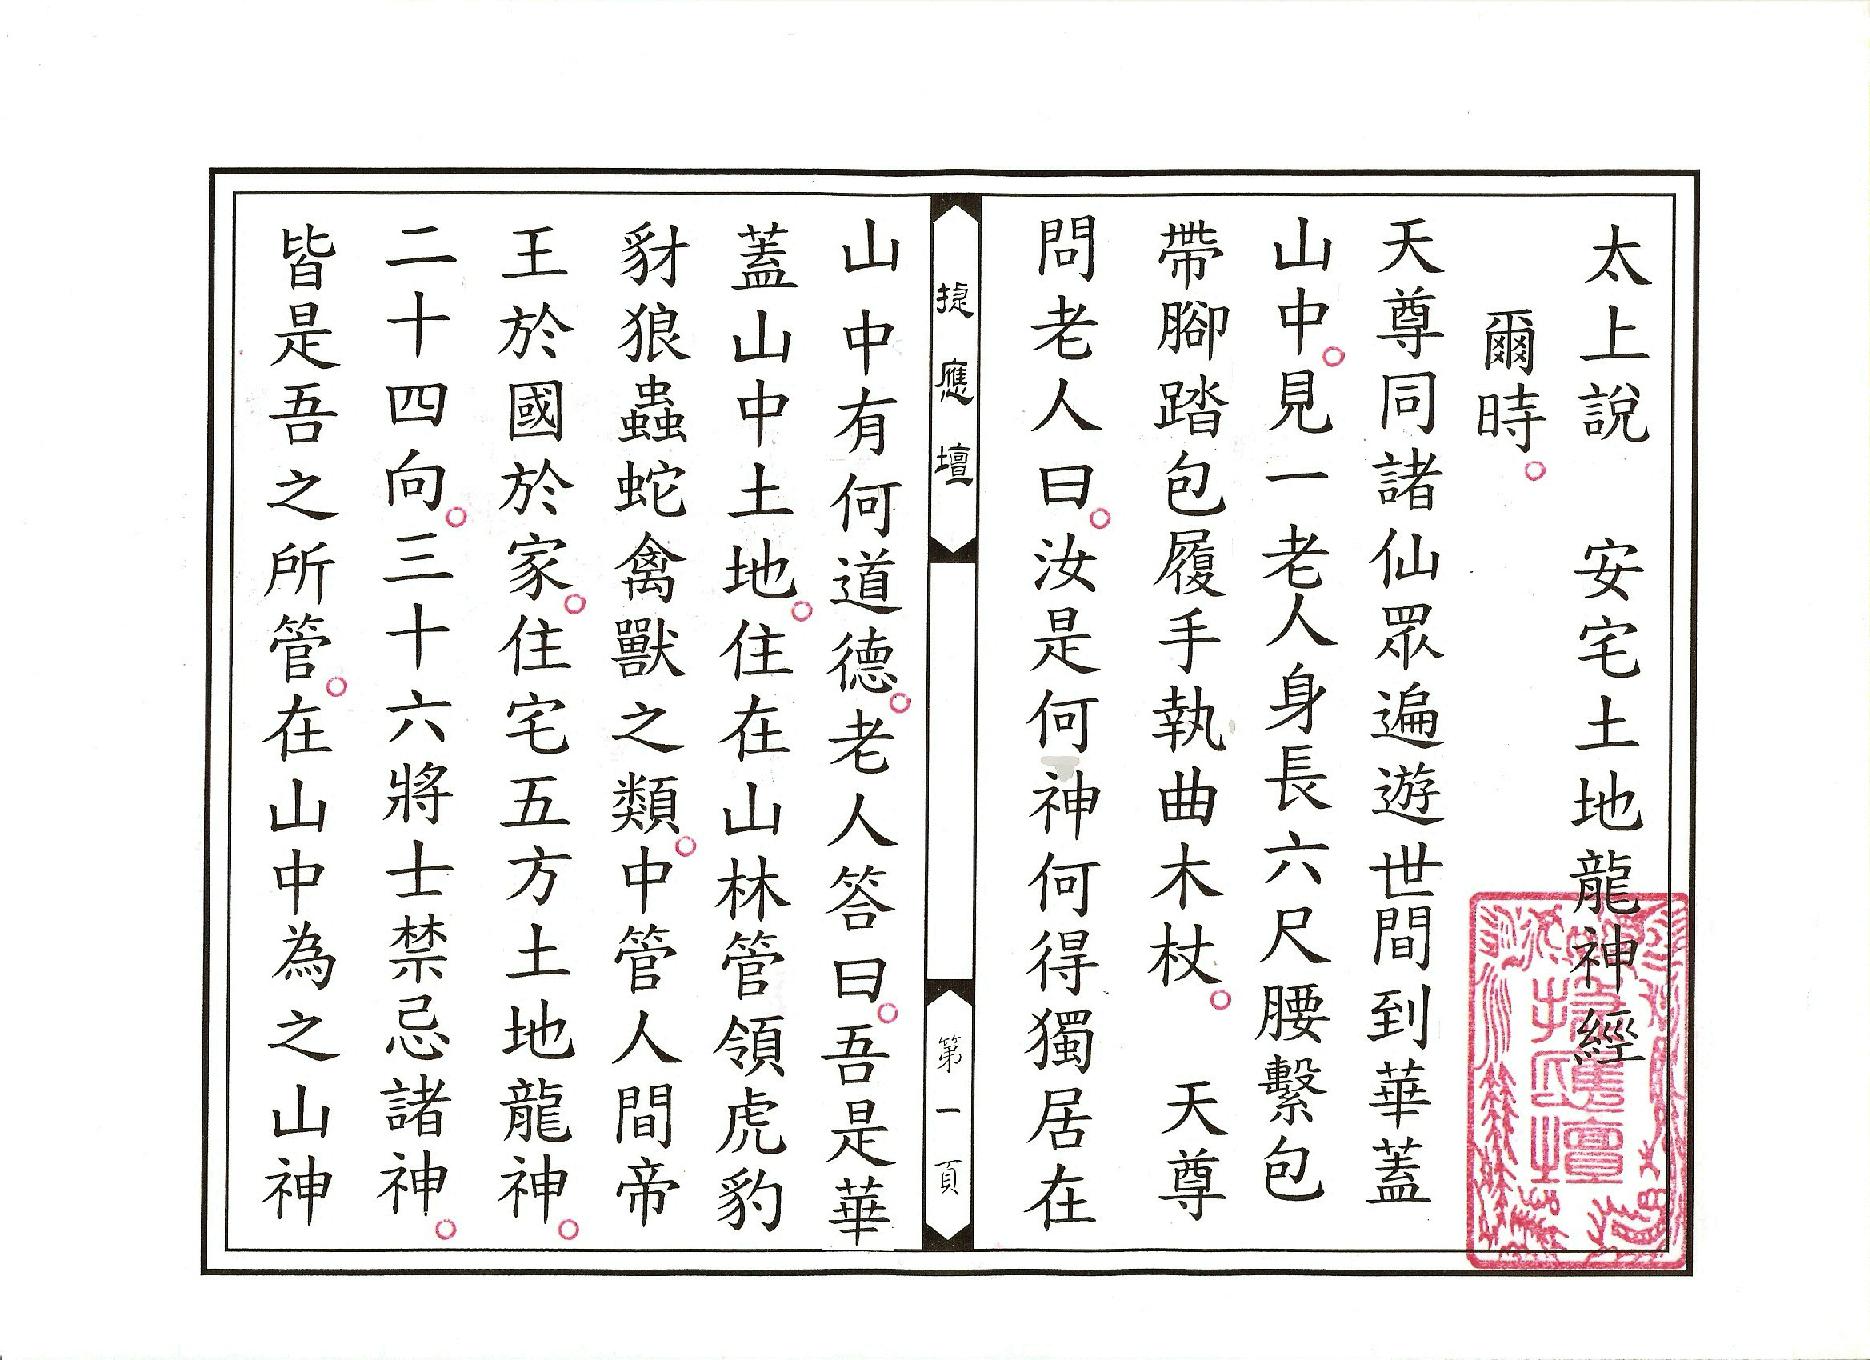 太上說　安宅土地龍神經
爾時。
天尊同諸仙眾遍遊世間到華蓋
山中。見一老人身長六尺腰繫包
帶腳踏包履手執曲木杖。　天尊
問老人曰。汝是何神何得獨居在
捷應壇
第一頁
山中有何道德。老人答曰。吾是華
蓋山中土地。住在山林管領虎豹
豺狼蟲蛇禽獸之類。中管人間帝
王於國於家。住宅五方土地龍神。
二十四向。三十六將士禁忌諸神。
皆是吾之所管。在山中為之山神
捷應壇